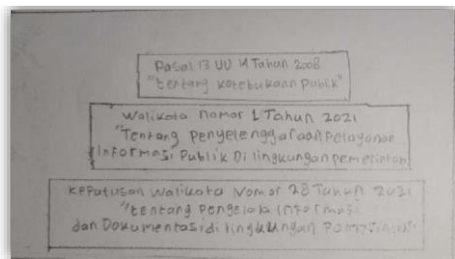 Pasal 13 UU 14 Tahun 2008
"tentang keterbukaan Publik"
Walikota nomor 1 Tahun 2021
"Tentang Penyelenggaraan Pelayanan
Informasi Publik Di lingkungan pemerintah
Keputusan Walikota Nomor 28 Tahun 2021
"tentang Pengelola informasi
dan Dokumentasi di lingkungan Pemerintah"